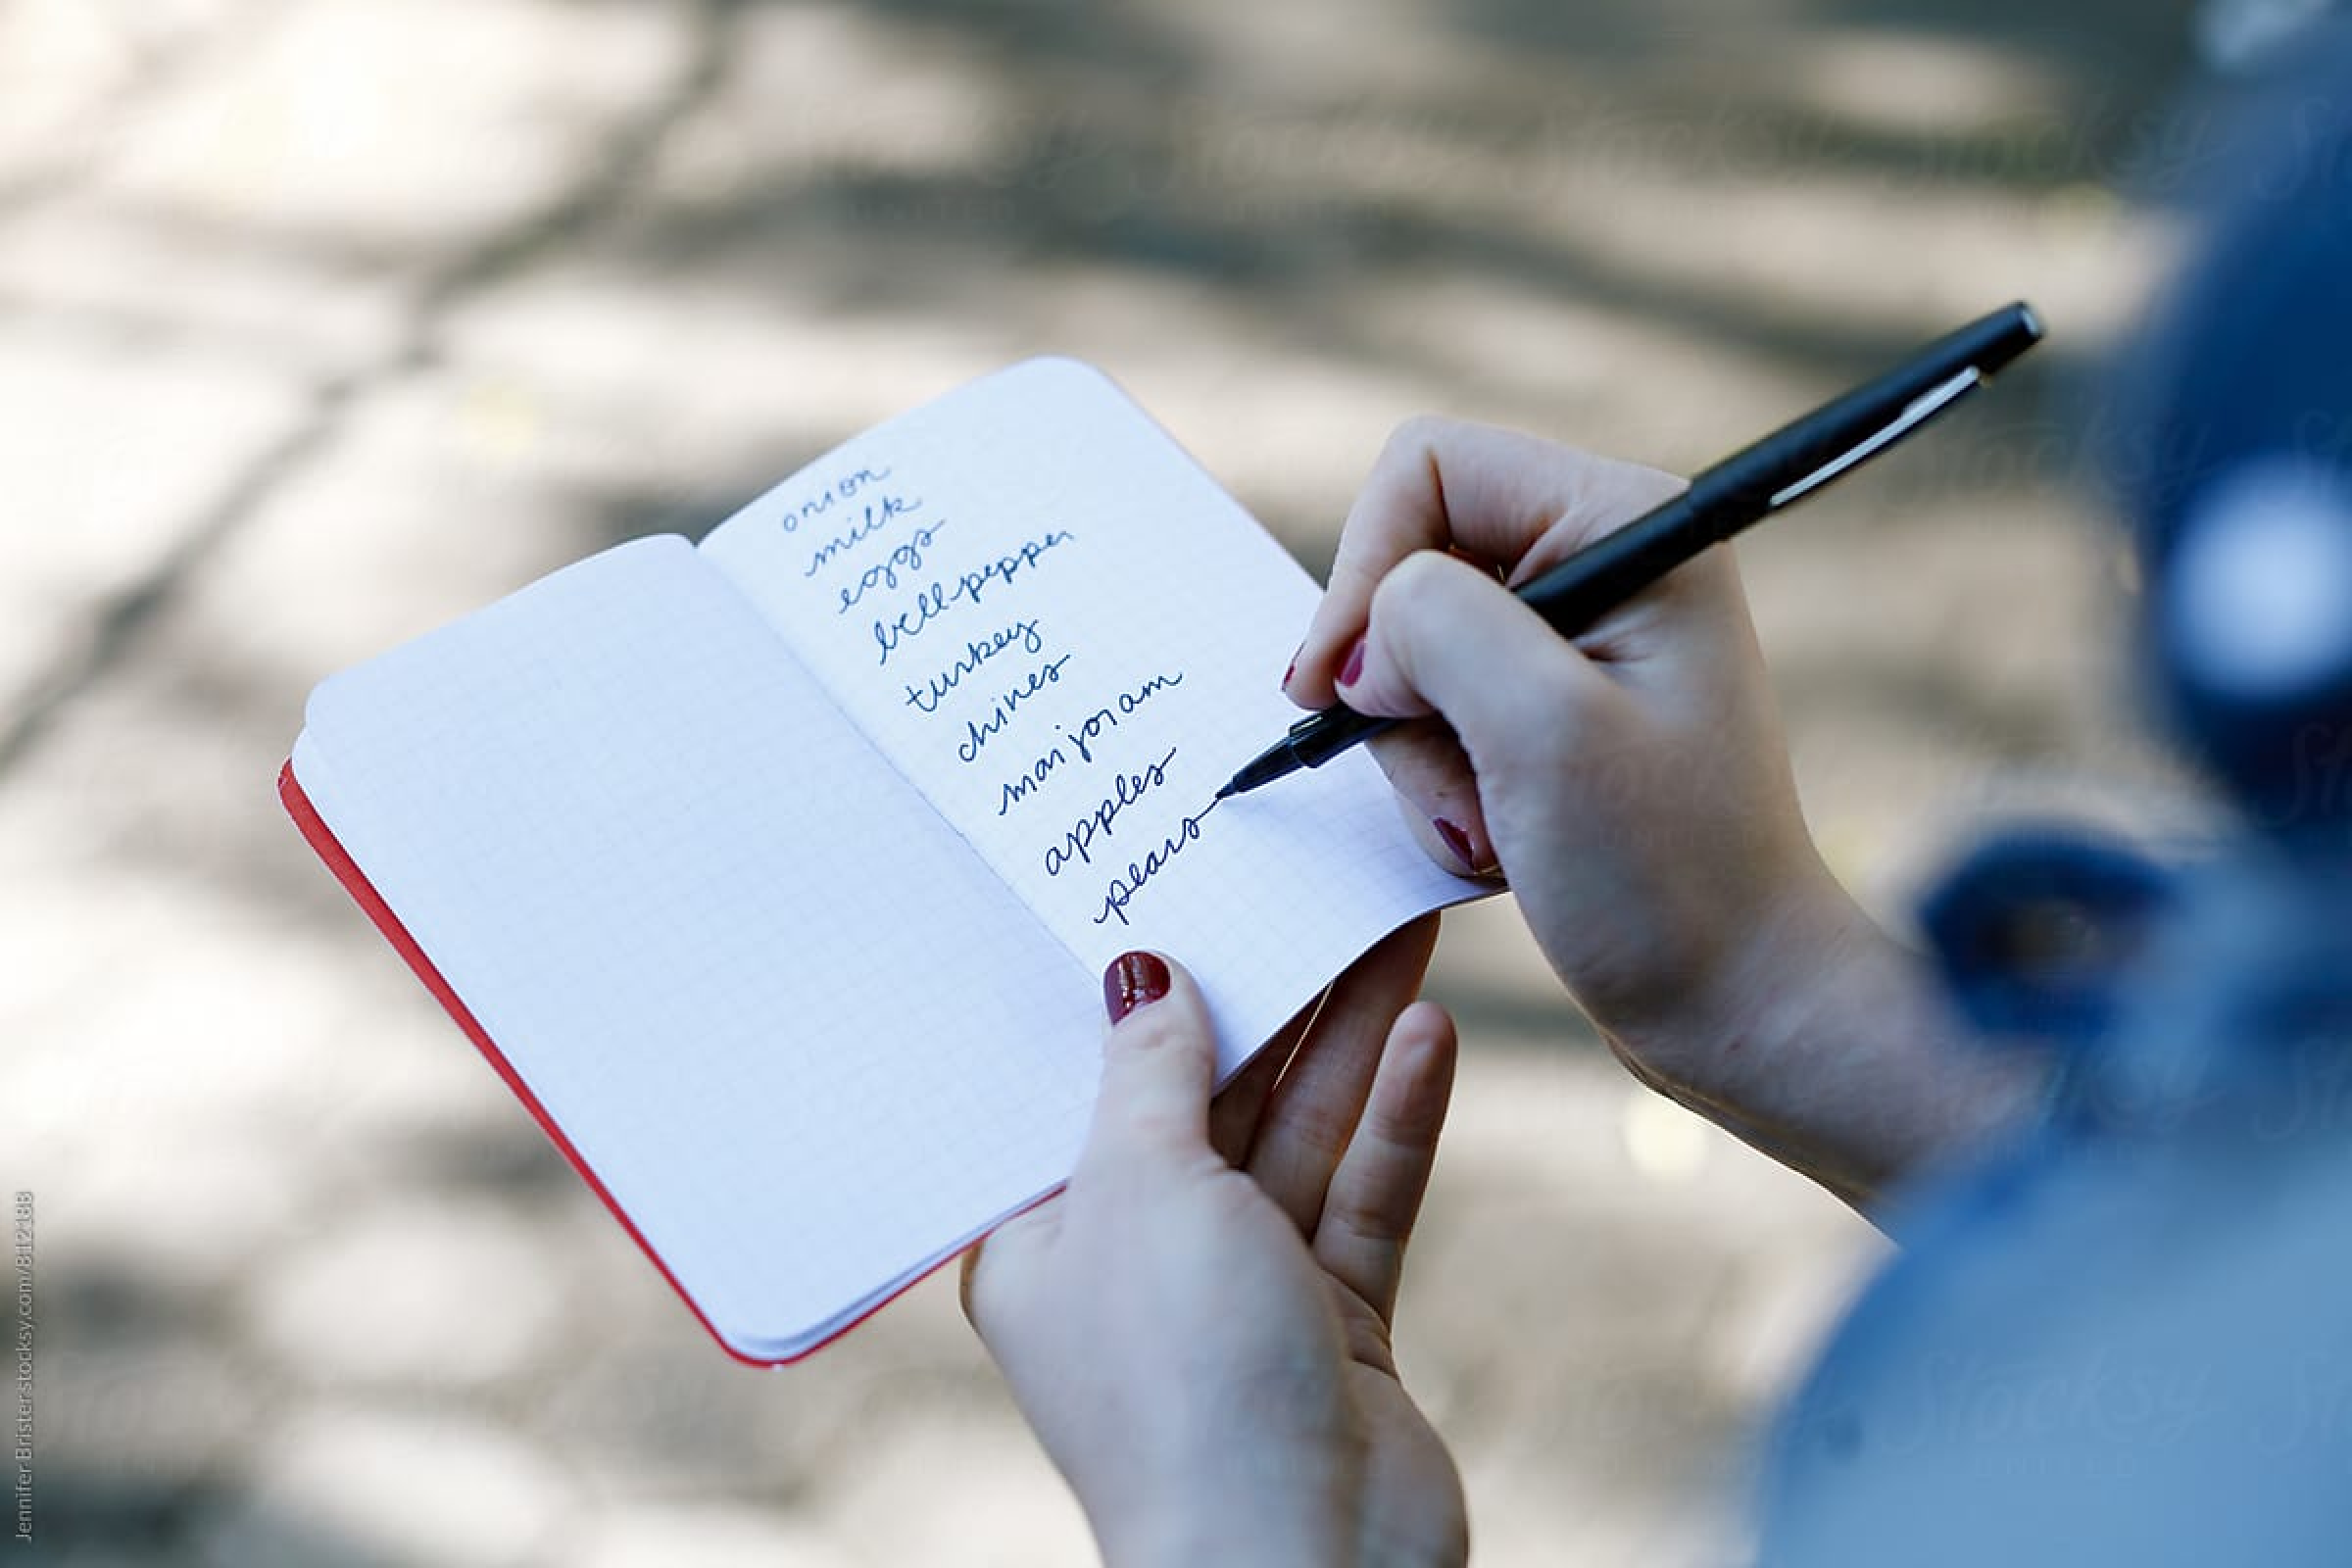 onion
milk
eggs
bell pepper
turkey
chines
marjoram
apples
pears
Jennifer Brister stocksy.com/812188